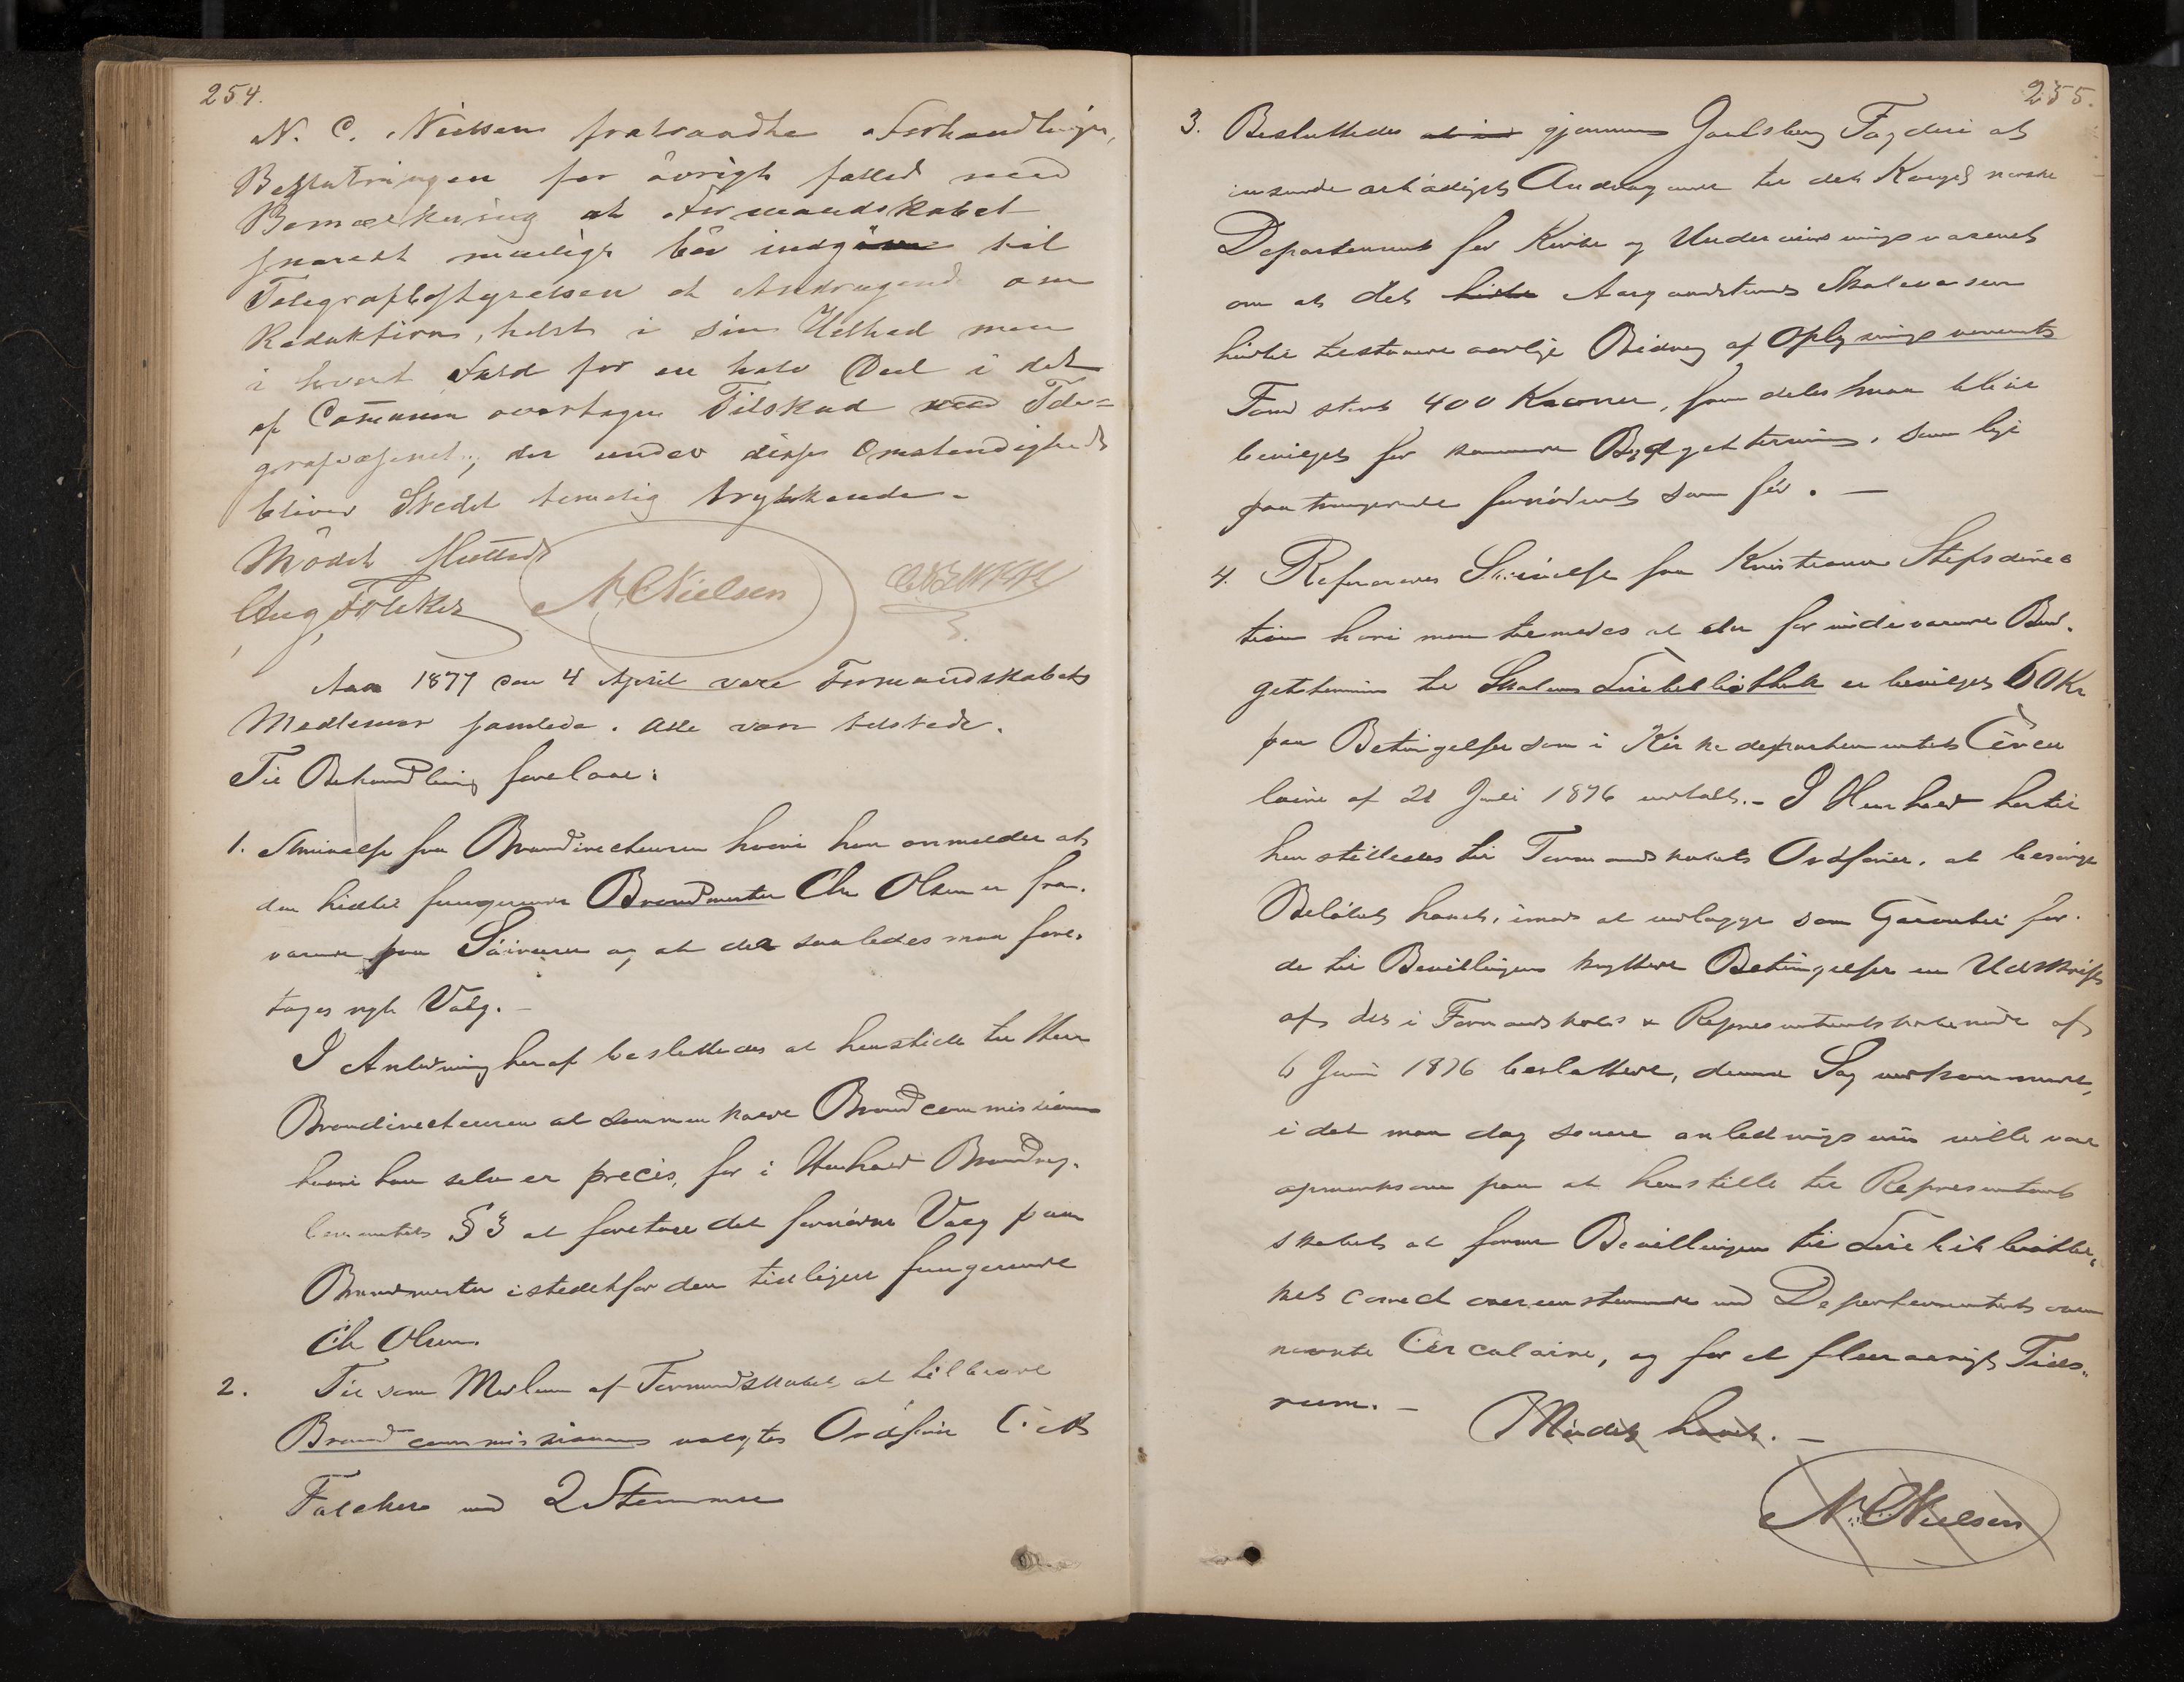 254.
N. C. Nielsen fratraadte Forhandlingen,
Beslutningen for övrigt fatted med
Bemærkning at Formandskabet
snarest muligt bör indgåaa til
Telegrafbestyrelsen et Andragende om
Reduktion, helst i sin Helhed men
i hvert Fald for en halv Deel i det
af Comunen overtagne Tilskud med Tele-
grafvæsenet, der under disse Omstendigheder
bliver Stedet temelig trykkende.
Mödet sluttedt
Aug. Fölcker N. C. Nielsen
Aar 1877 den 4 April vare Formandskabets
Medlemer samlede. Alle vare tilstede.
Til Behandling forelaae:
1. Skrivelse fra Branddirecteuren hvori han anmelder at
den hidtil fungerende Brandmester Chr Olsen er fra-
værende paa Söreisen og at der saaledes maa fore-
tages nyt Valg. –
I Anledning heraf besluttedes at henstille til Herr
Branddirecteuren at sammenkalde Brandcommissionen
hvori han selv er preces, for i Henhold Brandreg-
lementets § 3 at foretage det fornödne Valg paa
Brandmester istedetfor den tidligere fungerende
Ch Olsen.
2. Til som Medlem af Formandskabet at tiltræde
Brandcommissionen valgtes Ordförer
Falcher med 2 Stemmer
255.
3. Besluttedes gjennem Jarlsberg Fogderi at
insende ærbödigst Andragende til det Kongel norske
Departement for Kirke og Undervisningsvæsenet
om at det Aasgaardstrands Skolevæsen
hidtil tilstaaede aarlige Bidrag af Oplysningsvæsenets
Fond stort 400 Kroner, fremdeles maa blive
bevilget for kommende Budgettermin, som lige
paatrængende fornödent som för. –
4. Refereredes Skrivelse fra Kristiania Stiftsdirec
tion hvori man tilmeldes at der for indeværende Bud-
gettermin til Skolens Læsebibliothek er bevilget 60 Kr
paa Betingelser som i Kirkedepartementets Circu
laire af 21 Juli 1876 omtalt. – I Henhold hertil
henstilledes til Formandskabets Ordförer, at besörge
Belöbet hævet, imod at vedlægge som Garantie for
de til Bevillingen knyttede Betingelser en Udskrift
af det i Formandskabs & Representantskabsmöde af
6 Juni 1876 besluttede, denne Sag vedkommende,
i det man dog senere anledningsviis ville være
opmerksom paa at henstille til Representant
skabet at forme Bevillingen til Læsebibliothe-
ket correct overensstemmende med Departementets oven
nævnte Circulaire, og for et fleeraarigt Tids-
rum. –
Mödet hævet. –
N. C. Nielsen